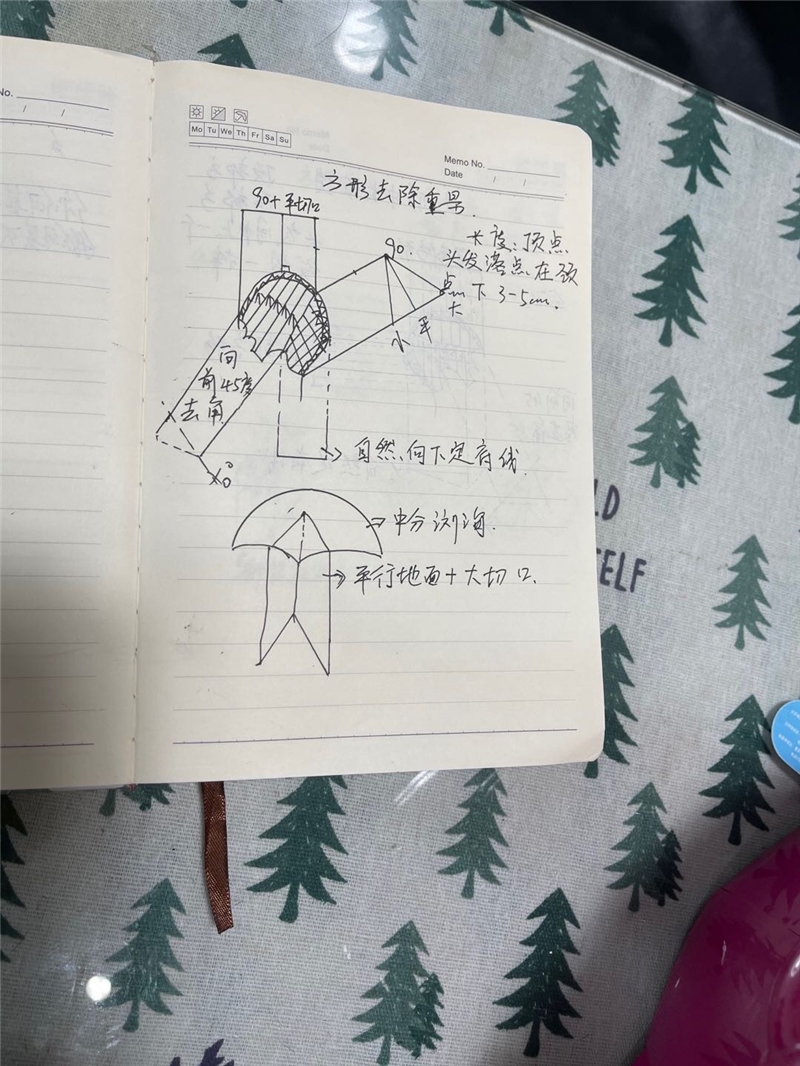 No.
/ /
Mo Tu We Th Fr Sa Su
Memo No.
Date / /
方形去除重量.
90+平切口
90.
长度:顶点
头发落点在颈
点 下3-5cm.
大
小 平
向
前45度
去角
自然向下定府线
中分浏海.
平行地面+大切口.
LD
ELF